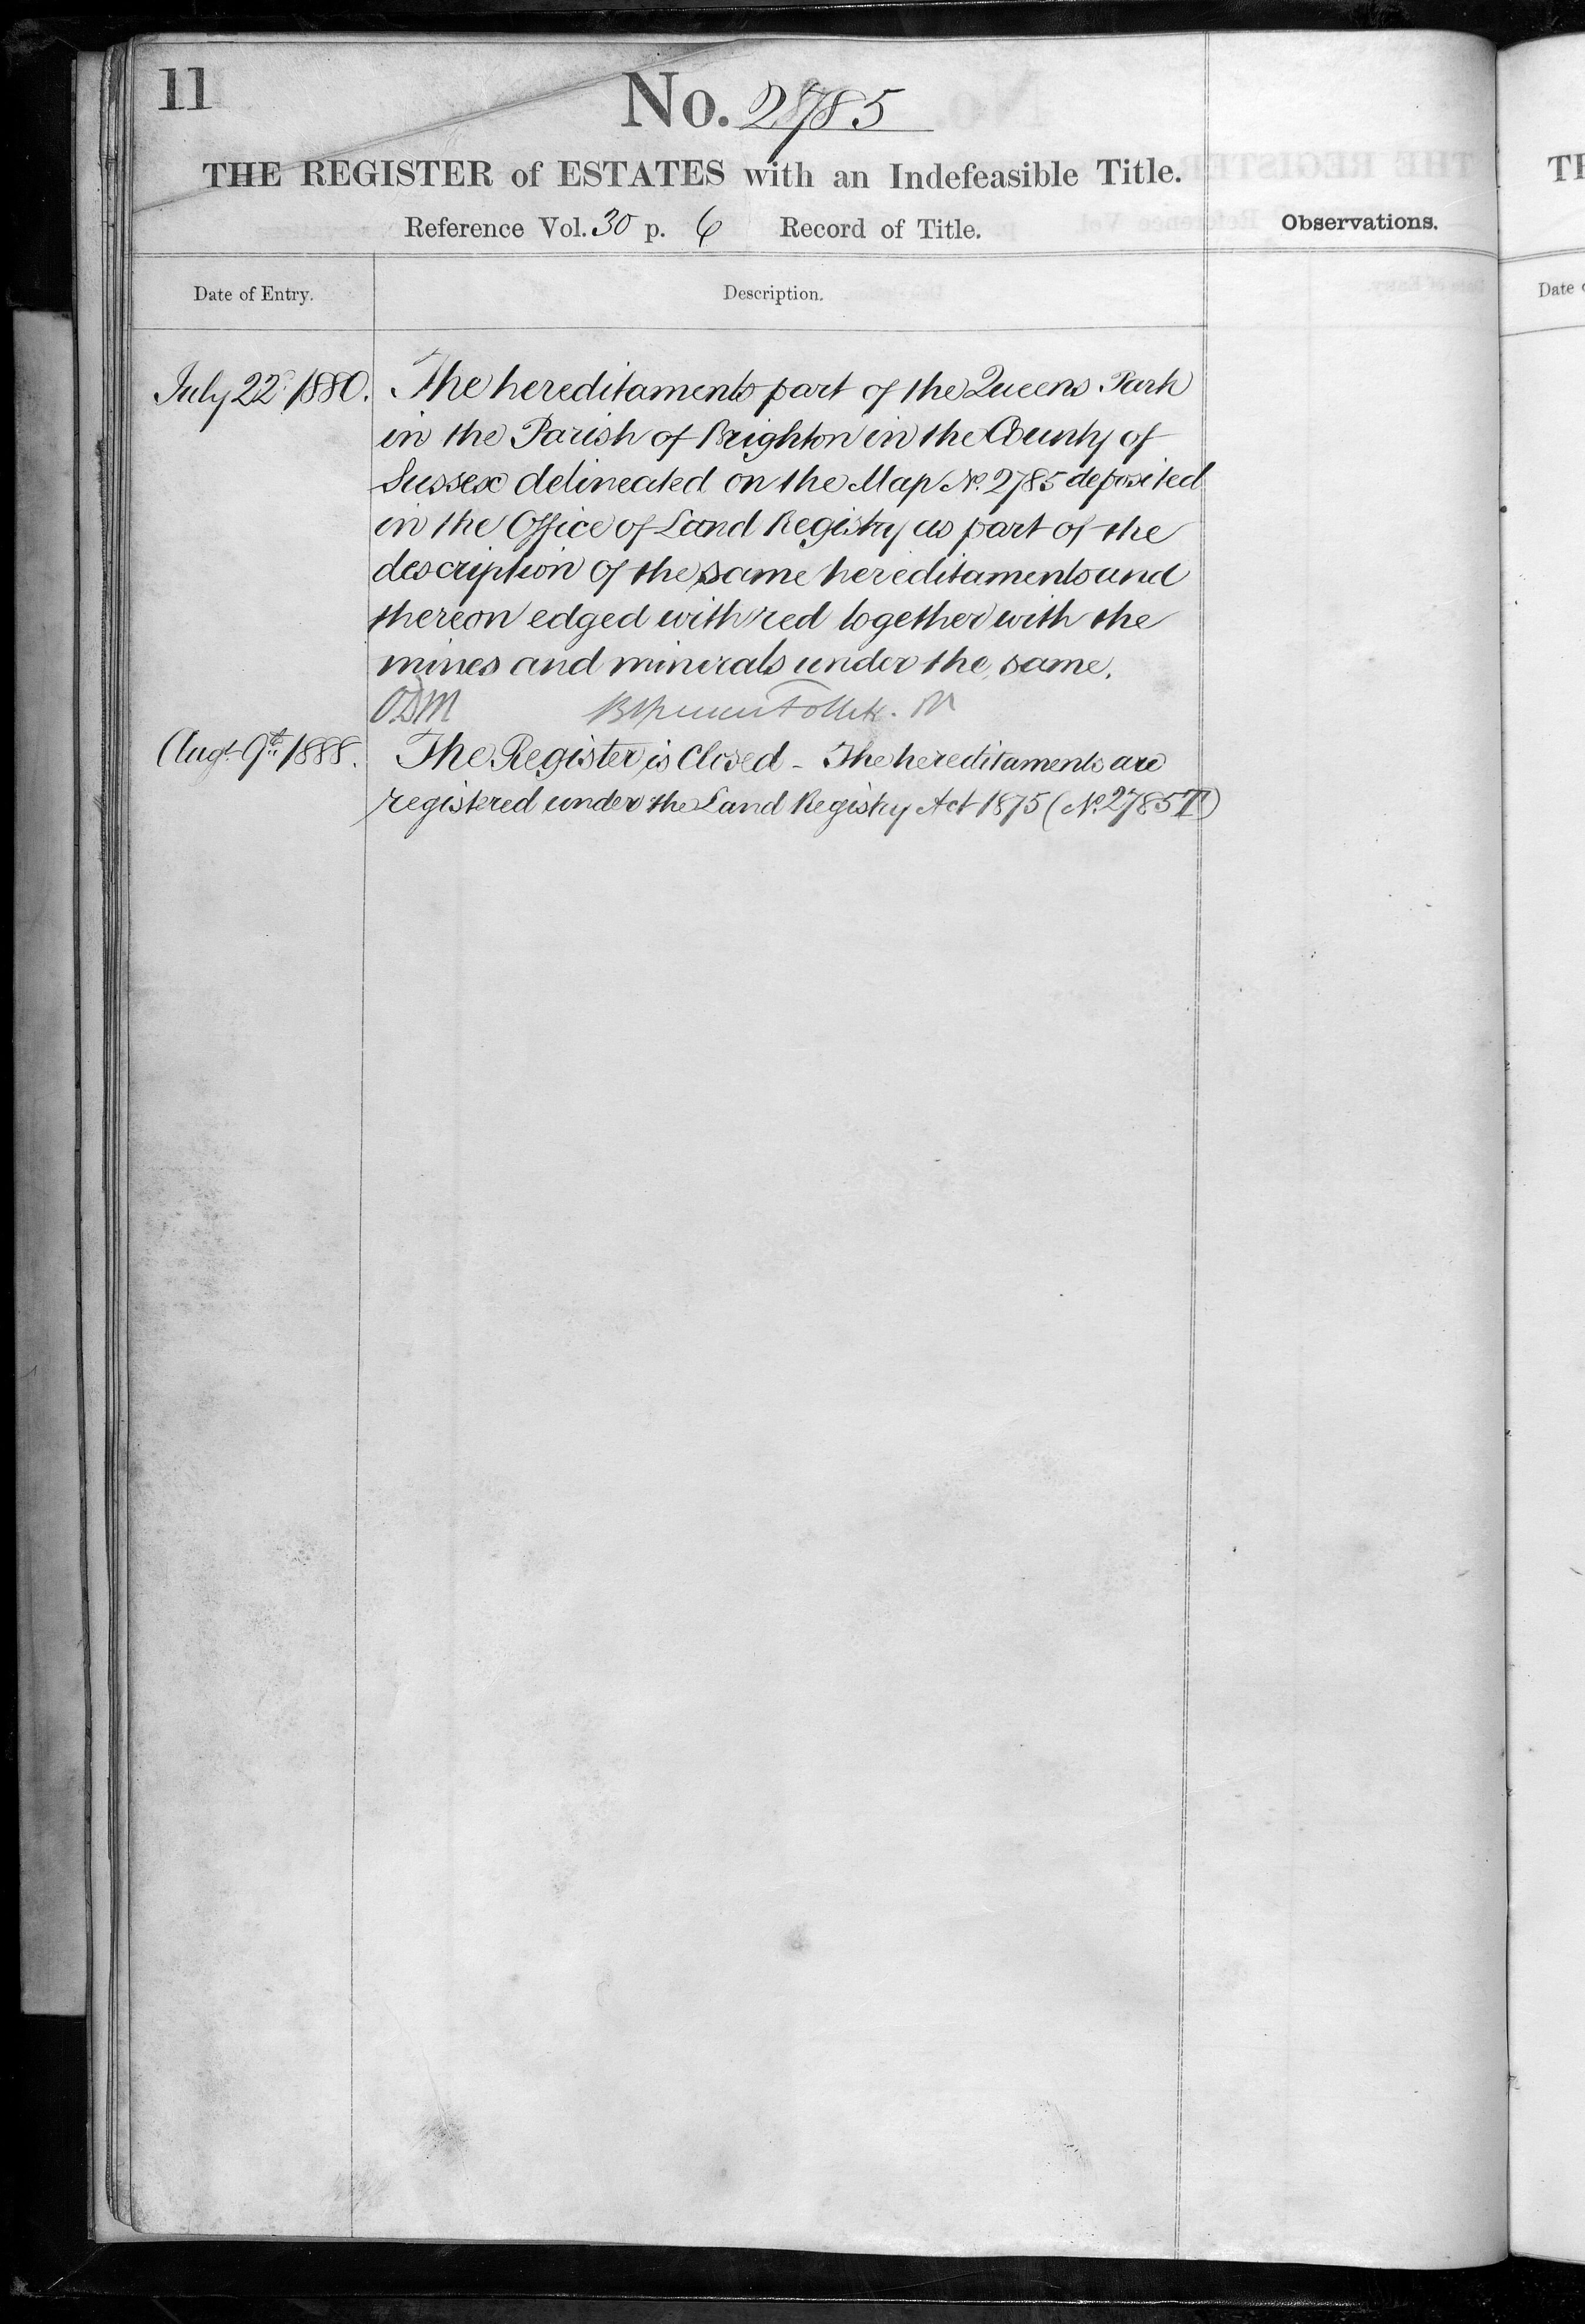 11
No. 2785
THE REGISTER of ESTATES with an Indefeasible Title.
Reference Vol. 30 p. 6 Record of Title.
Observations.
Date of Entry.
Description.
July 22d 1880. The hereditaments part of the Queens Park
in the Parish of Brighton in the County of
Sussex delineated on the Map No. 2785 deposited
in the Office of Land Registry as part of the
description of the same hereditaments and
thereon edged with red together with the
mines and minerals under the same.
Augt. 9th 1888. The Register is Closed - The hereditaments are
registered under the Land Registry Act 1875 (No. 2785 T)
Date